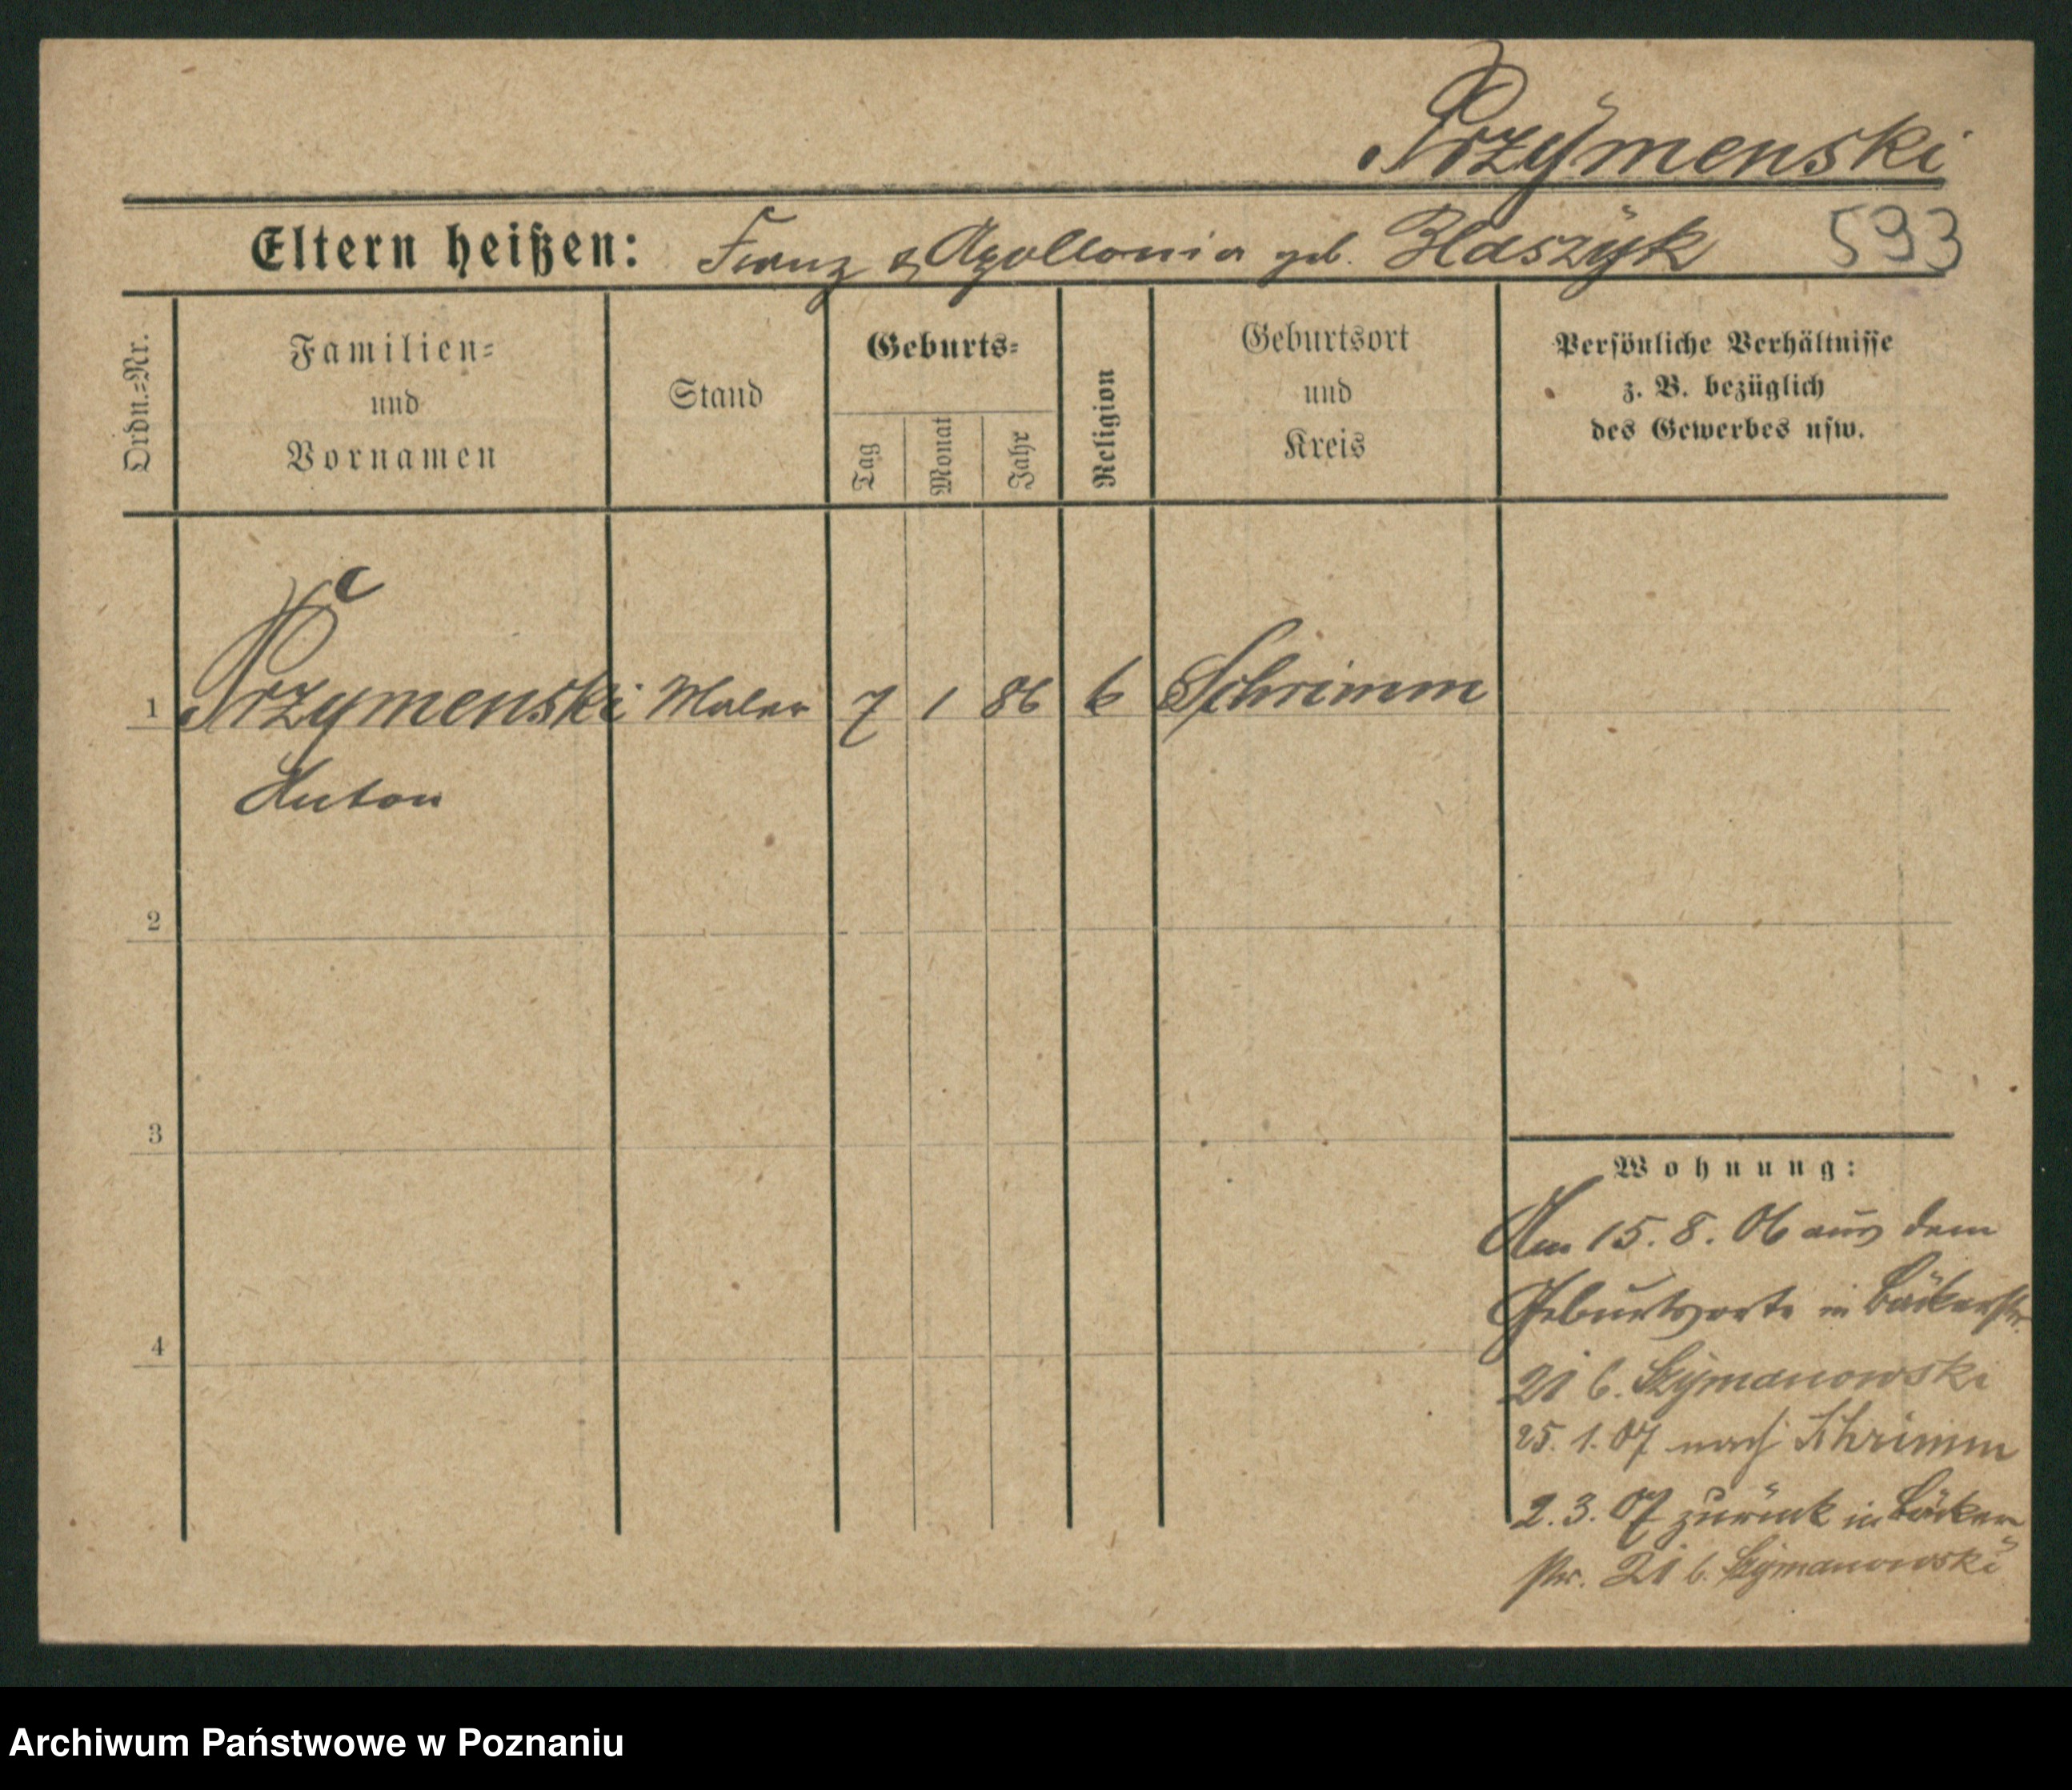 Przÿmenski
Eltern heißen: Franz & Apollonia geb. Blaszÿk 593
Ordn.=Nr.
Familien=
und
Vornamen
Stand
Geburts=
Tag
Monat
Jahr
Religion
Geburtsort
und
Kreis
Persönliche Verhältnisse
z. B. bezüglich
des Gewerbes usw.
1 Przÿmenski Maler 7 1 86 k Schrimm
Anton
2
3
4
Wohnung:
Am 15. 8. 06 aus dem
Geburtsorte in Bäckerstr.
21 b. Szÿmanowski
25. 1. 07 nach Schrimm
2. 3. 07 zurück in Bäcker
str. 21 b. Szÿmanowski
Archiwum Państwowe w Poznaniu